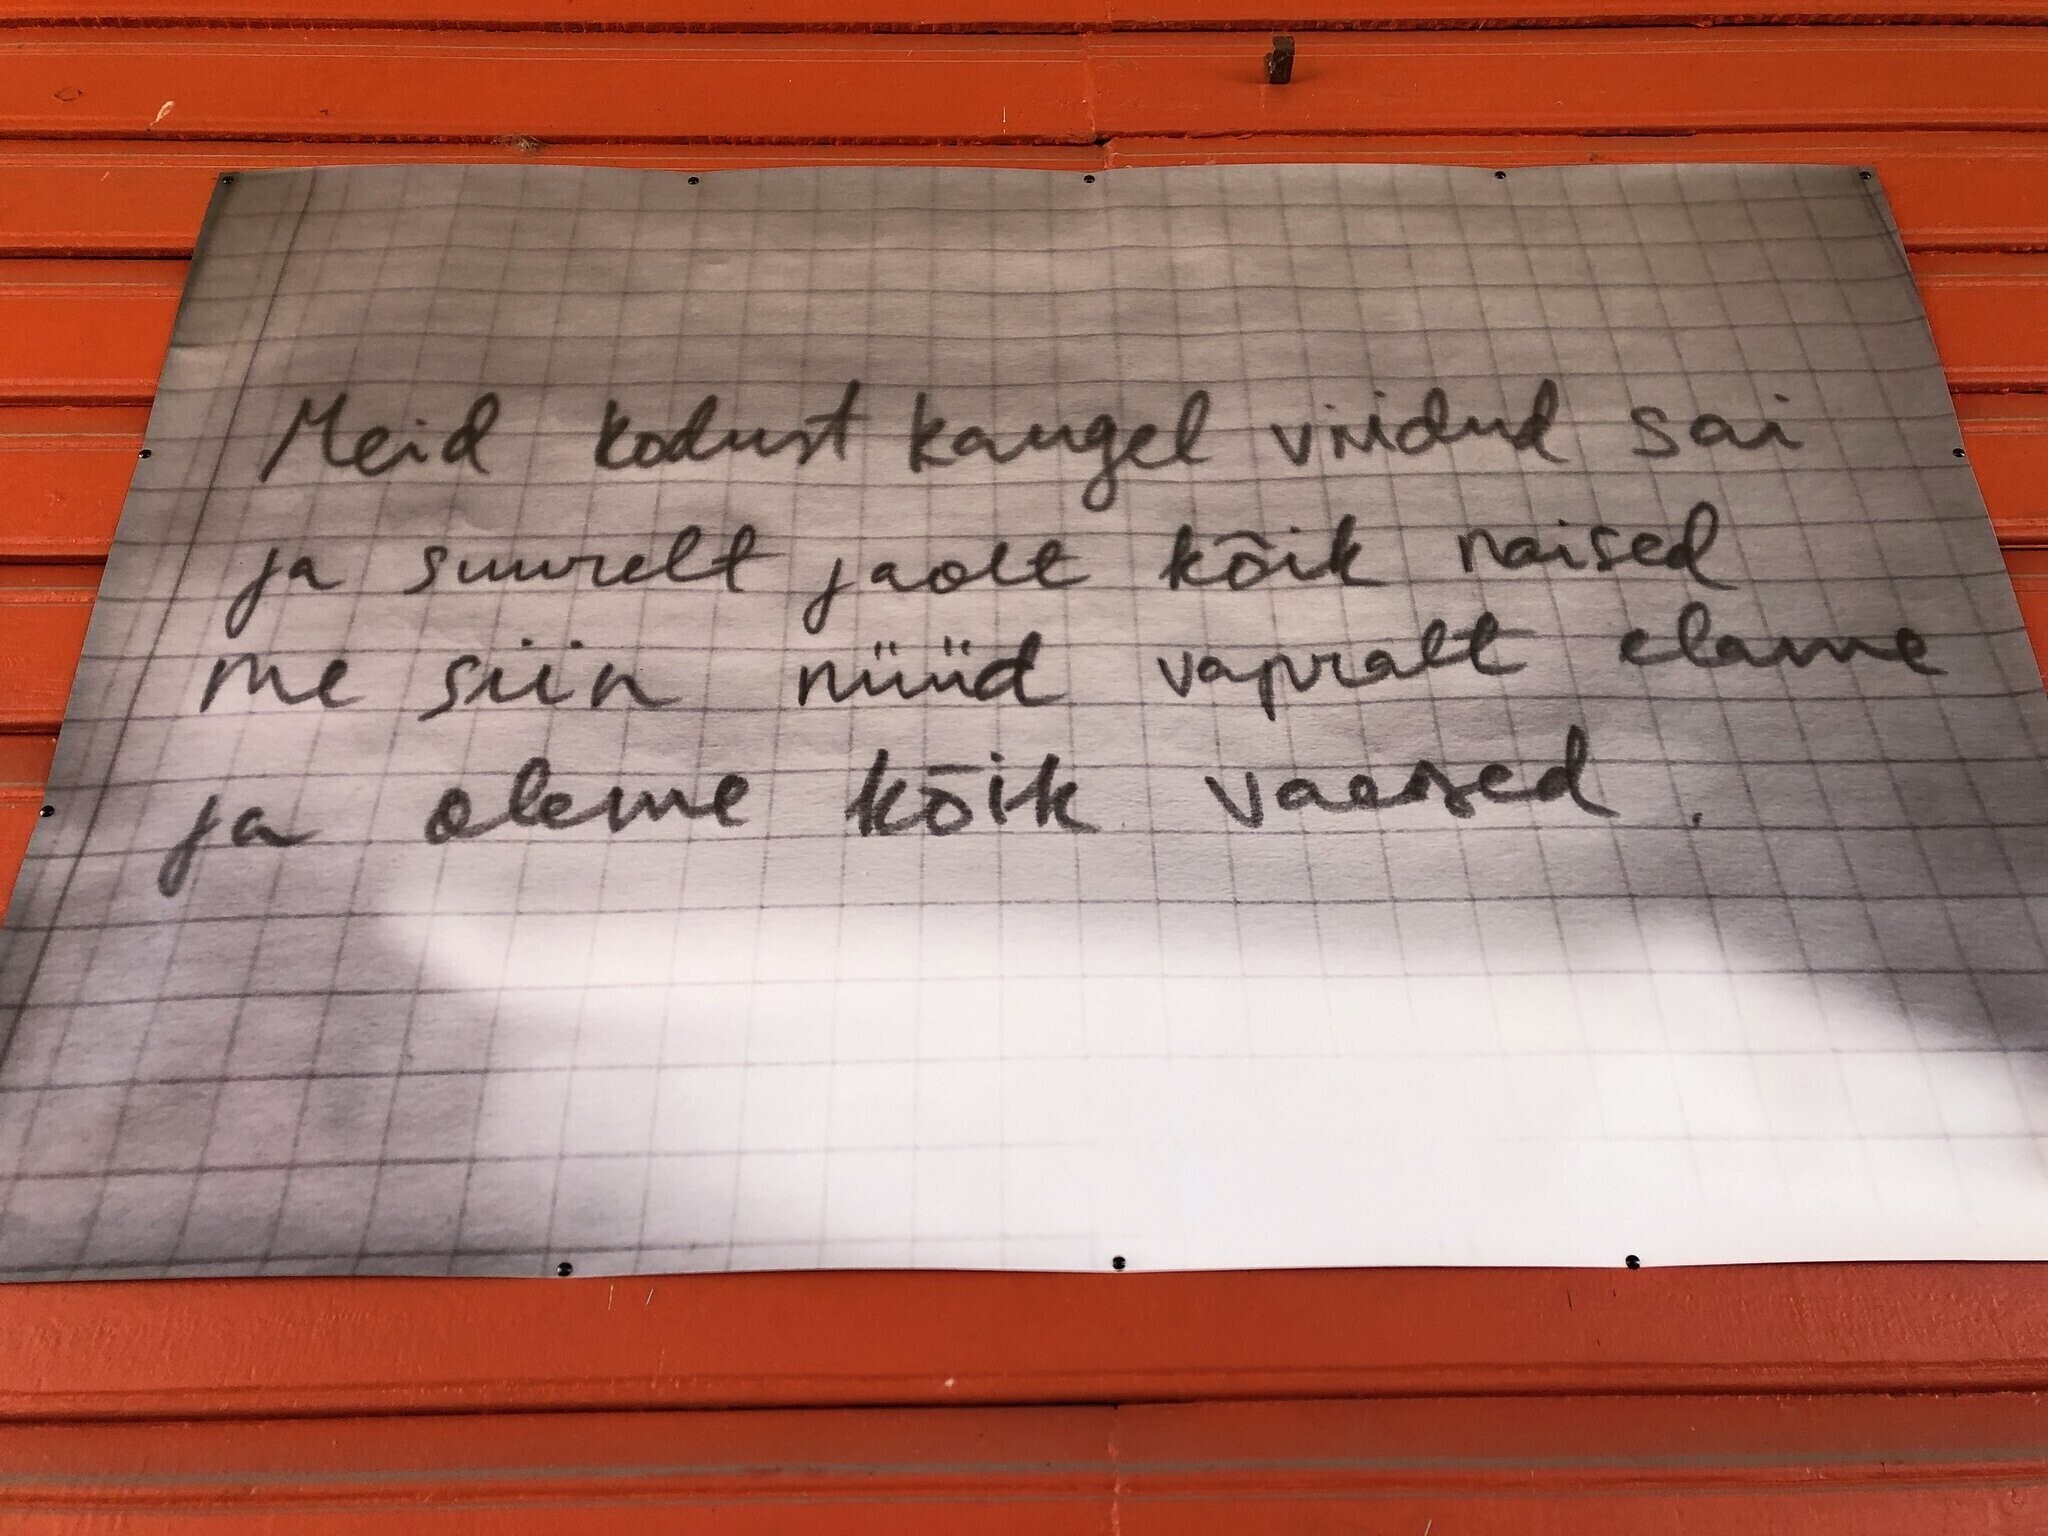 Meid kodust kaugel viidud sai
ja suurelt jaolt kõik naised
me siin nüüd vapralt elame
ja oleme kõik vaesed.